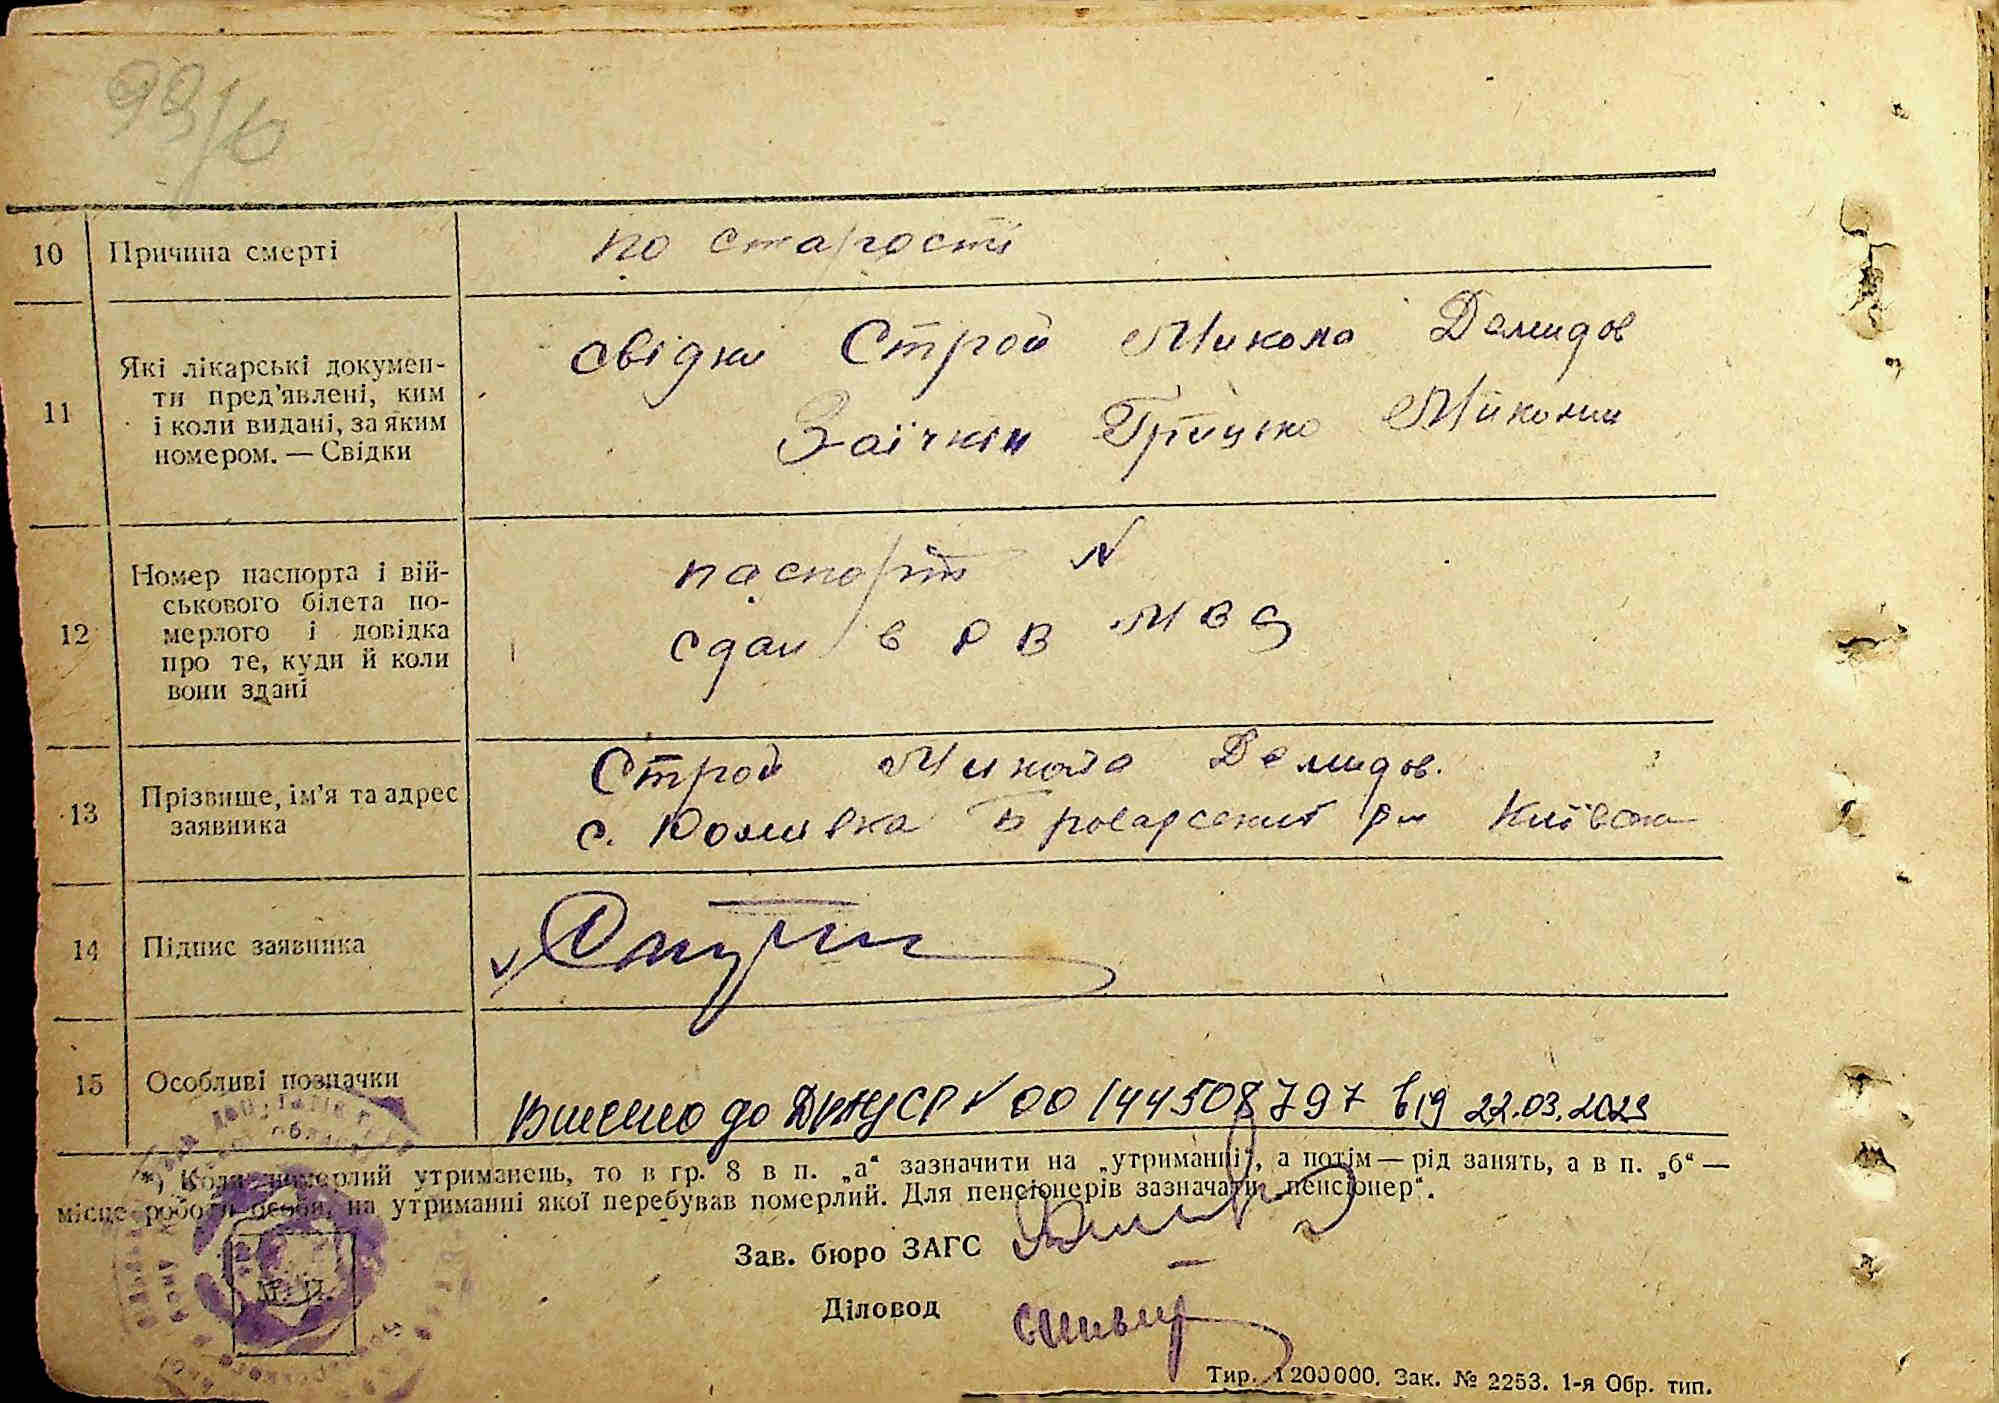 99/6
10 Причина смерті по старості
11 Які лікарські документи пред'явлені, ким
і коли видані, за яким
номером. — Свідки
свідки Строй Микола Демидов
Заїчкін Грицько Микол
12 Номер паспорта і вій-
ськового білета по-
мерлого і довідка
про те, куди й коли
вони здані
паспорт N
сдан в РВ МВД
13 Прізвище, ім'я та адрес
заявника
Строй Микола Демидов.
с. Броварський р-н Київська
14 Підпис заявника
15 Особливі позначки
Внесено до ДРАЦСГ N 00144508797 від 22.03.2023
*) Коли померлий утриманець, то в гр. 8 в п. „а“ зазначити на „утриманні“, а потім — рід занять, а в п. „б“ —
місце роботи особи, на утриманні якої перебував померлий. Для пенсіонерів зазначати „пенсіонер“.
Зав. бюро ЗАГС
М. П.
Діловод
Тир. 1200000. Зак. № 2253. 1-я Обр. тип.